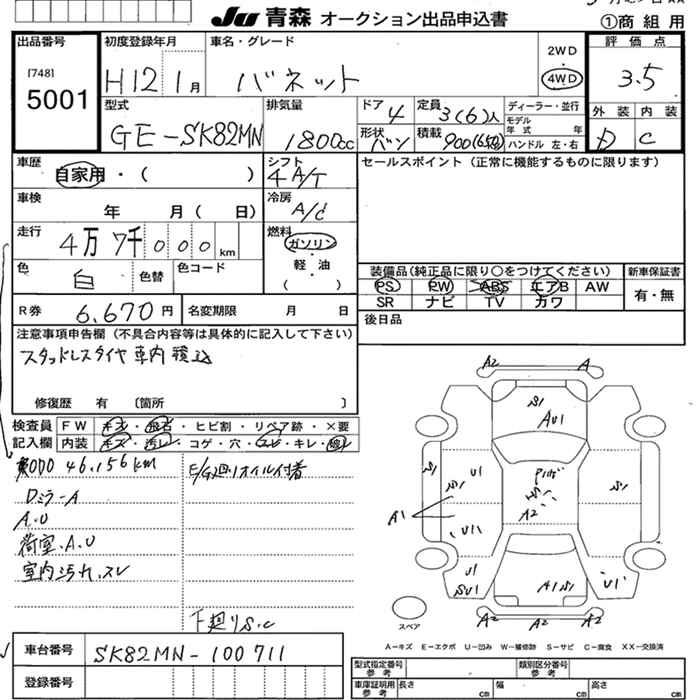 JU 青森 オークション出品申込書
①商組用
出品番号
[748]
5001
初度登録年月
H12 1月
車名・グレード
バネット
2WD
4WD
評価点
3.5
外装
内装
D
C
型式
GE-SK82MN
排気量
1800cc
ドア
4
定員
3(6)人
ディーラー・並行
モデル年式 年
形状
バン
積載
900(650)
ハンドル 左・右
車歴
自家用・( )
シフト
4 A/T
セールスポイント(正常に機能するものに限ります)
車検
年 月( 日)
冷房
A/C
走行
4万7千000km
燃料
ガソリン
軽・油
( )
色
白
色替
色コード
装備品(純正品に限り○をつけてください)
新車保証書
PS PW ABS エアB AW
SR ナビ TV カワ
有・無
R券
6,670円
名変期限 月 日
後日品
注意事項申告欄(不具合内容等は具体的に記入して下さい)
スタッドレスタイヤ 車内積込
修復歴 有 〔箇所 〕
検査員
記入欄
FW
キズ・飛石・ヒビ割・リペア跡・×要
内装
キズ・汚レ・コゲ・穴・スレ・キレ・
ODO 46,156km
E/G廻りオイル付着
Dミラ-A
A.U
荷室.A.U
室内汚れ.スレ
下廻りS.C
A2
A
S1
AU1
S1
U1
S1
S1
A2
A1
U1
U1
SU1
A1S1
U1
A2
A2
A2
スペア
A-キズ E-エクボ U-凹み W-補修跡 S-サビ C-腐食 XX-交換済
車台番号
SK82MN-100711
登録番号
型式指定番号
参考
類別区分番号
参考
車庫証明用
参考
長さ cm
幅 cm
高さ cm